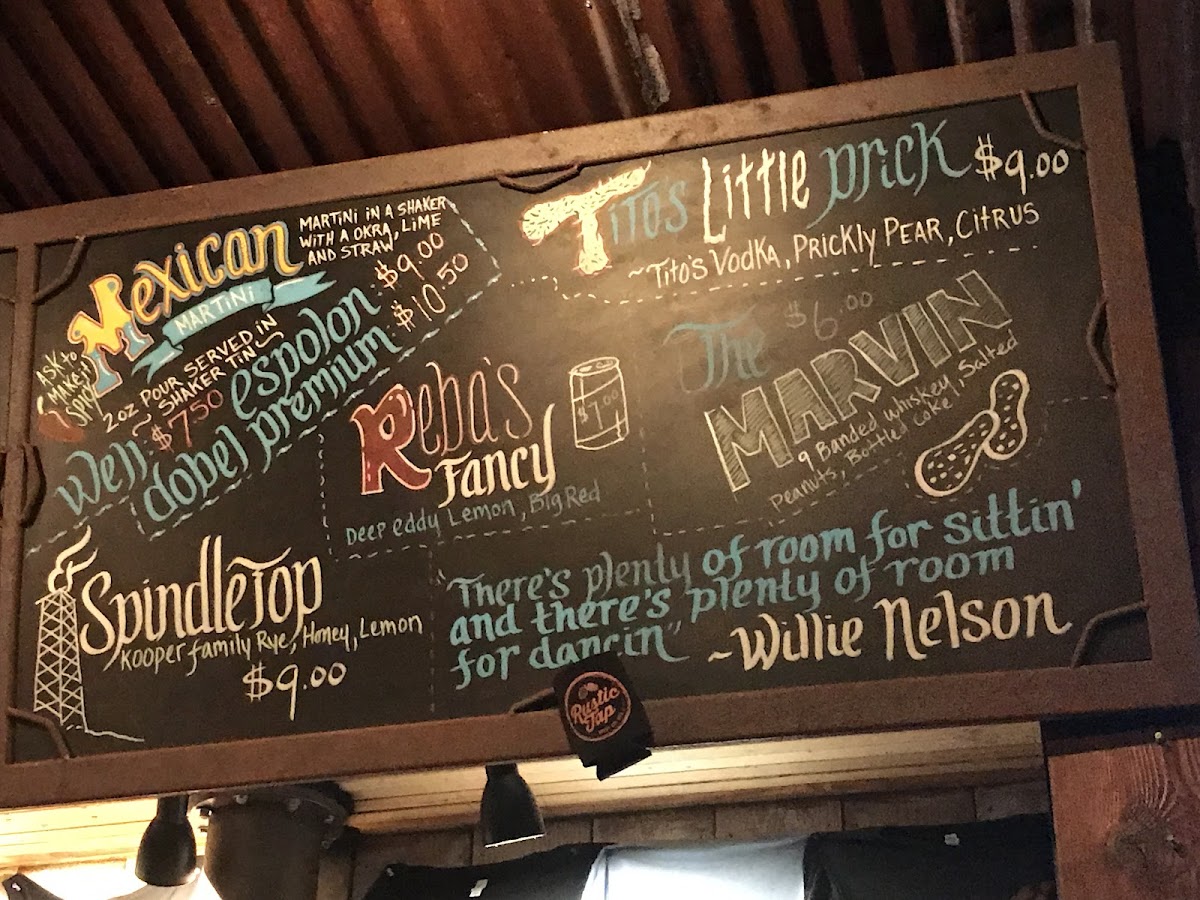 Mexican
MARTINI
MARTINI IN A SHAKER
WITH A OKRA, LIME
AND STRAW
ASK to
MAKE it
SPICY
2oz POUR SERVED IN
~ SHAKER TIN ~
Well $7.50
espolon $9.00
dobel premium $10.50
Tito's Little prick $9.00
~Tito's Vodka, Prickly Pear, Citrus
Reba's
Fancy
$7.00
Deep eddy Lemon, Big Red
The $6.00
MARVIN
9 Banded Whiskey, Salted
Peanuts, Bottled Coke
SpindleTop
Kooper family Rye, Honey, Lemon
$9.00
"There's plenty of room for sittin'
and there's plenty of room
for dancin"
~Willie Nelson
Rustic
Tap